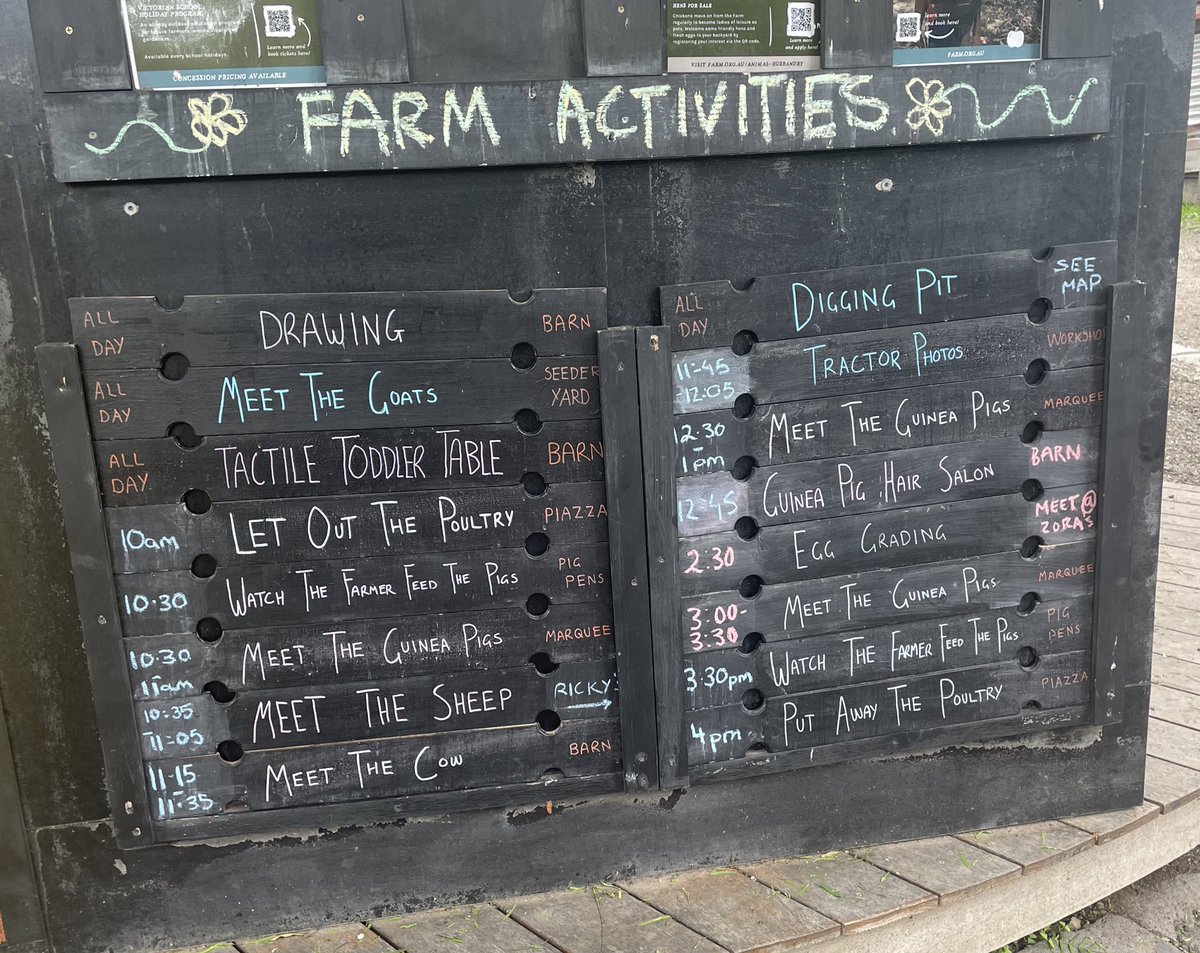 VICTORIAN SCHOOL
HOLIDAY PROGRAM
Available every school holidays
Learn more and
book tickets here!
CONCESSION PRICING AVAILABLE
HENS FOR SALE
Chickens move on from the Farm
regularly to become ladies of leisure as
pets. Welcome some friendly hens and
fresh eggs to your backyard by
registering your interest via the QR code.
Learn more
and apply here!
VISIT FARM.ORG.AU/ANIMAL-HUSBANDRY
Learn more and
book here!
FARM.ORG.AU
FARM ACTIVITIES
ALL DAY DRAWING BARN
ALL DAY MEET THE GOATS SEEDER YARD
ALL DAY TACTILE TODDLER TABLE BARN
10am LET OUT THE POULTRY PIAZZA
10.30 WATCH THE FARMER FEED THE PIGS PIG PENS
10.30 11am MEET THE GUINEA PIGS MARQUEE
10.35 11.05 MEET THE SHEEP RICKY'S →
11.15 11.35 MEET THE COW BARN
ALL DAY DIGGING PIT SEE MAP
11.45 -12.05 TRACTOR PHOTOS WORKSHOP
12.30 - 1pm MEET THE GUINEA PIGS MARQUEE
12.45 GUINEA PIG HAIR SALON BARN
2.30 EGG GRADING MEET @ ZORAS
3:00- 3:30 MEET THE GUINEA PIGS MARQUEE
3.30pm WATCH THE FARMER FEED THE PIGS PIG PENS
4pm PUT AWAY THE POULTRY PIAZZA